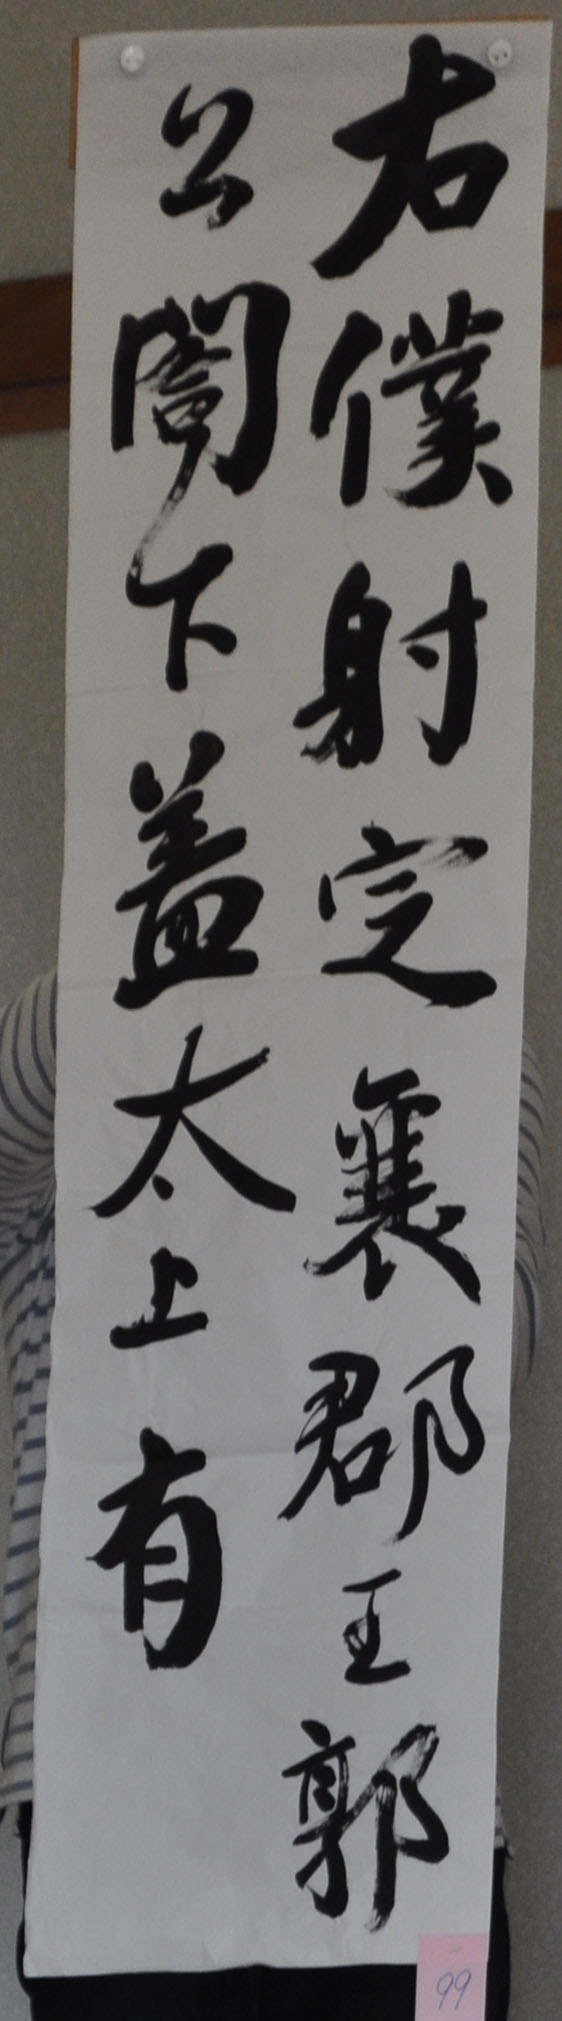 右僕射定襄郡王郭
公閤下蓋太上有
99